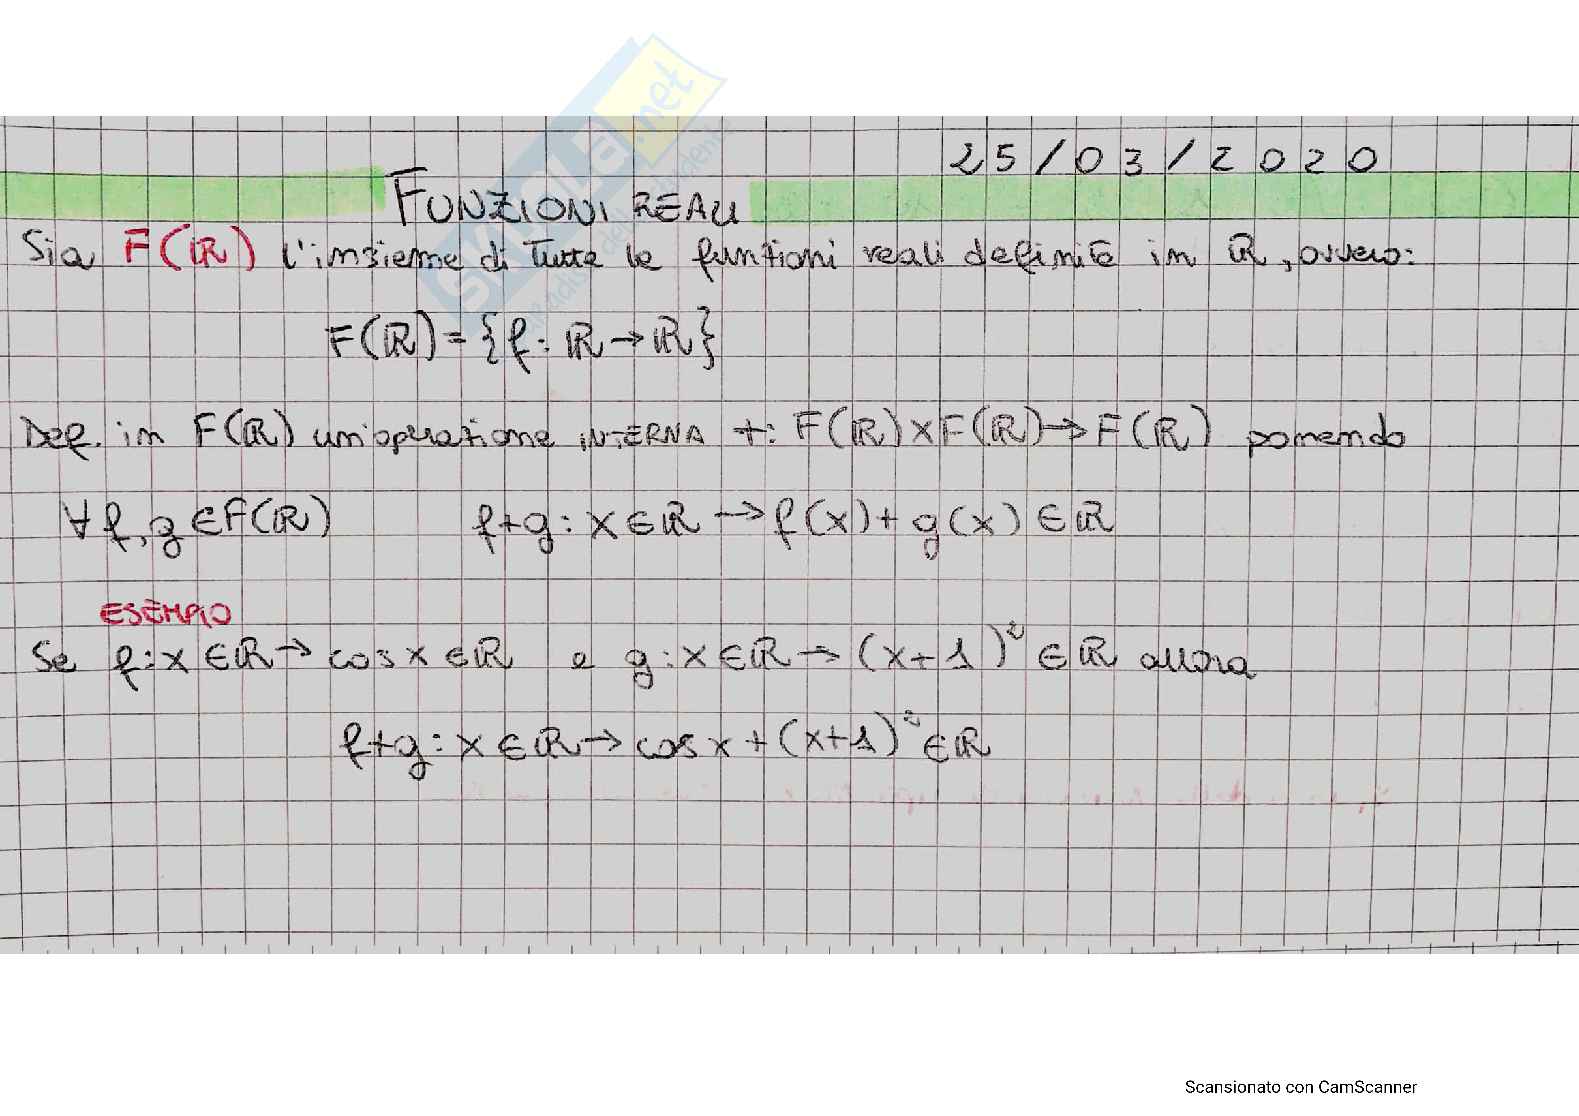 25/03/2020
FUNZIONI REALI
Sia F(ℝ) l'insieme di tutte le funzioni reali definite in ℝ, ovvero:
F(ℝ)={f: ℝ→ℝ}
Def. in F(ℝ) un'operazione INTERNA +: F(ℝ)×F(ℝ)→F(ℝ) ponendo
∀f,g∈F(ℝ) f+g: x∈ℝ→f(x)+g(x)∈ℝ
ESEMPIO
Se f:x∈ℝ→cosx∈ℝ e g:x∈ℝ→(x+1)²∈ℝ allora
f+g: x∈ℝ→cosx+(x+1)²∈ℝ
SKUOLA.net
Scansionato con CamScanner